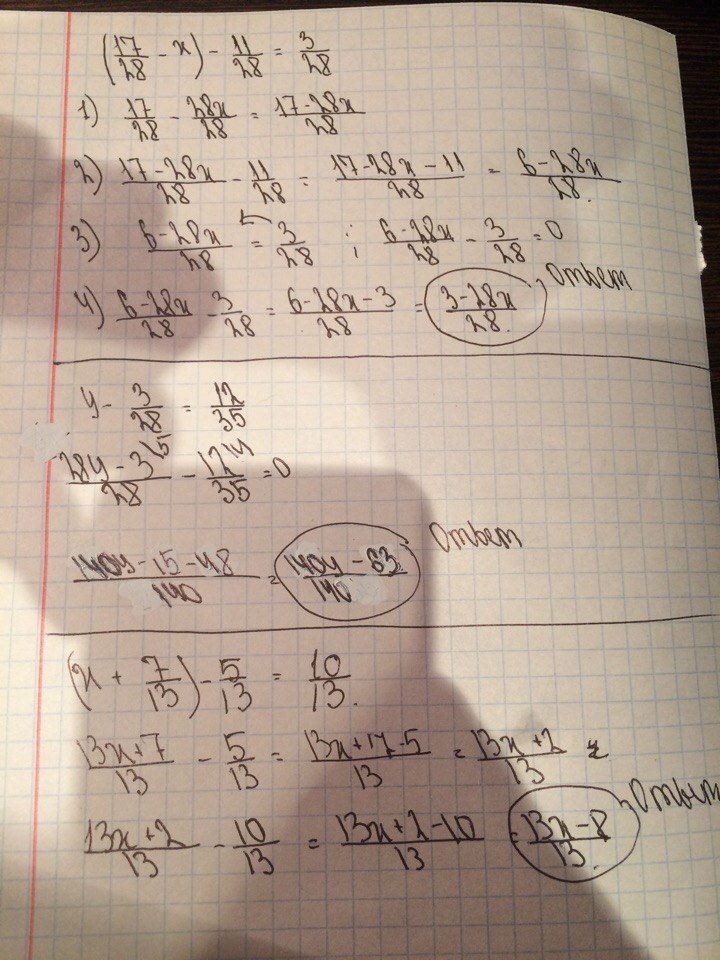 (17/28 - x) - 11/28 = 3/28
1) 17/28 - 28x/28 = (17-28x)/28
2) (17-28x)/28 - 11/28 = (17-28x-11)/28 = (6-28x)/28
3) (6-28x)/28 = 3/28 ; (6-28x)/28 - 3/28 = 0
4) (6-28x)/28 - 3/28 = (6-28x-3)/28 = (3-28x)/28 Ответ
y - 3/28 = 12/35
(28y-3)/28 (5 - 12/35 (4 = 0
(140y-15-48)/140 = (140y-63)/140 Ответ
(x + 7/13) - 5/13 = 10/13
(13x+7)/13 - 5/13 = (13x+7-5)/13 = (13x+2)/13 =
(13x+2)/13 - 10/13 = (13x+2-10)/13 = (13x-8)/13 Ответ